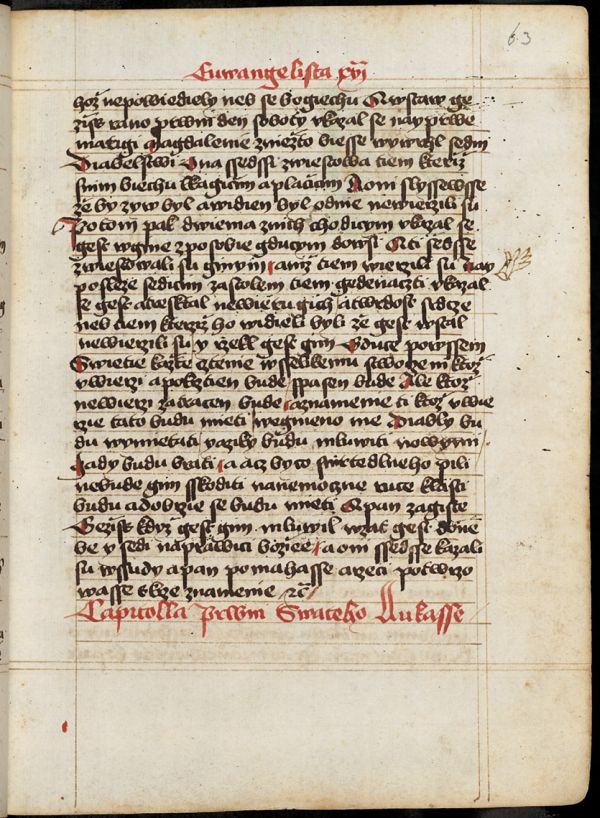 63
Euwangelista xvi
hož nepowiediely neb se bogiechu A wstaw ge
ziss rano prwni den soboty vkazal se nayprwe
marigi magdalenie zniežto biesse wywrhl sedm
Diabelstwi Ona ssedssi zwiestowa tiem kteřiž
snim biechu lkagicim a placicim A oni slyssewsse
že by zyw byl a widien byl odnie newierzili su
Potom pak dwiema znich chodicym vkazal se
gest wgine zpósobie gducym dowsi A ti ssedsse
zwiestowali su ginym aniž tiem wierzili su nay
posleze sedicim zastolem tiem gedenaczti vkazal
se gest a tresktal newieru gich a twrdost srdcze
neb tiem kteřiž ho widieli byli že gest wstal
newierzili su y wzekl gest gim Gduce powssem
Swietie kažte cztenie wsselikemu stworzeni ktož
vwierzi a pokrztien bude spasen bude Ale ktož
newierzi zatracen bude a znamenie ti ktož vwie
rzie tato budu mieti wegmeno me Diably bu
du wymietati yazyky budu mluwiti nowymi
hady budu brati a acz by co smrtedlneho pili
nebude gim skoditi na nemoczne ruce klasti
budu a dobrzie se budu mieti A pan zagiste
Gezissi když gest gim mluwil wzat gest do ne
be y sedi naprawici božiee a oni ssedsse kazali
su wssudy a pan pomahasse a rzeci potwrzo
wasse skrze znamenie rc
Capitolla Prwni Swateho Lukasse